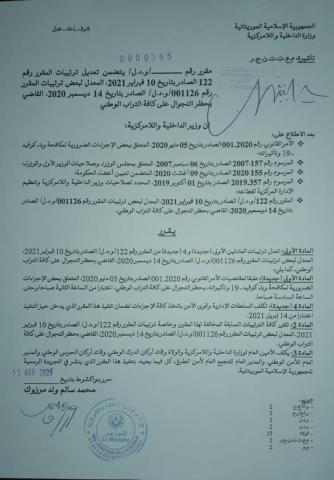 الجمهورية الإسلامية الموريتانية
وزارة الداخلية واللامركزية
شرف - إخاء - عدل
0000395
تأشيرة: م.ع.ت.ت.ن.ج.ر
مقرر رقم /و.د.ل/ يتضمن تعديل ترتيبات المقرر رقم
122 الصادر بتاريخ 10 فبراير 2021، المعدل لبعض ترتيبات المقرر
رقم 001126/و.د.ل/ الصادر بتاريخ 14 ديسمبر 2020، القاضي
بحظر التجوال على كافة التراب الوطني
إن وزير الداخلية واللامركزية،
بعد الاطلاع على:
الأمر القانوني رقم 001.2020 الصادر بتاريخ 05 مايو 2020، المتعلق ببعض الإجراءات الضرورية لمكافحة وباء كوفيد
-19 وتأثيراته؛
المرسوم رقم 157-2007 الصادر بتاريخ 06 سبتمبر 2007، المتعلق بمجلس الوزراء وصلاحيات الوزير الأول والوزراء؛
المرسوم رقم 155-2020 الصادر بتاريخ 09 غشت 2020، المتضمن تعيين أعضاء الحكومة؛
المرسوم رقم 357-2019 الصادر بتاريخ 01 أكتوبر 2019، المحدد لصلاحيات وزير الداخلية واللامركزية وتنظيم
الإدارة المركزية لقطاعه؛
المقرر رقم 122/و.د.ل/ الصادر بتاريخ 10 فبراير 2021، المعدل لبعض ترتيبات المقرر رقم 001126/و.د.ل/ الصادر
بتاريخ 14 ديسمبر 2020، القاضي بحظر التجوال على كافة التراب الوطني.
يقرر
المادة الأولى: تعدل ترتيبات المادتين الأولى (جديدة) و 4 (جديدة) من المقرر رقم 122/و.د.ل/ الصادر بتاريخ 10 فبراير 2021،
المعدل لبعض ترتيبات المقرر رقم 001126/و.د.ل/ الصادر بتاريخ 14 ديسمبر 2020، القاضي بحظر التجوال على كافة التراب
الوطني، كما يلي:
المادة الأولى (جديدة): طبقا لمقتضيات الأمر القانوني رقم 001.2020 الصادر بتاريخ 05 مايو 2020، المتعلق ببعض الإجراءات
الضرورية لمكافحة وباء كوفيد -19 وتأثيراته، يحظر التجوال على كافة التراب الوطني، اعتبارا من الساعة الثانية صباحا وحتى
الساعة السادسة صباحا.
المادة 4 (جديدة): تكلف السلطات الإدارية وقوى الأمن باتخاذ كافة الإجراءات لضمان تنفيذ هذا المقرر الذي يدخل حيز التنفيذ
اعتبارا من 14 إبريل 2021.
المادة 2: تلغى كافة الترتيبات السابقة المخالفة لهذا المقرر وخاصة ترتيبات المقرر رقم 122/و.د.ل/ الصادر بتاريخ 10 فبراير
2021، المعدل لبعض ترتيبات المقرر رقم 001126/و.د.ل/ الصادر بتاريخ 14 ديسمبر 2020، القاضي بحظر التجوال على كافة
التراب الوطني.
المادة 3: يكلف الأمين العام لوزارة الداخلية واللامركزية والولاة وقائد أركان الدرك الوطني وقائد أركان الحرس الوطني والمدير
العام للأمن الوطني والمدير العام للتجمع العام لأمن الطرق، كل فيما يعنيه، بتنفيذ هذا المقرر الذي ينشر في الجريدة الرسمية
للجمهورية الإسلامية الموريتانية.
حرر بنواكشوط بتاريخ
13 AVR 2021
محمد سالم ولد مرزوك
الوزير
Le Ministre